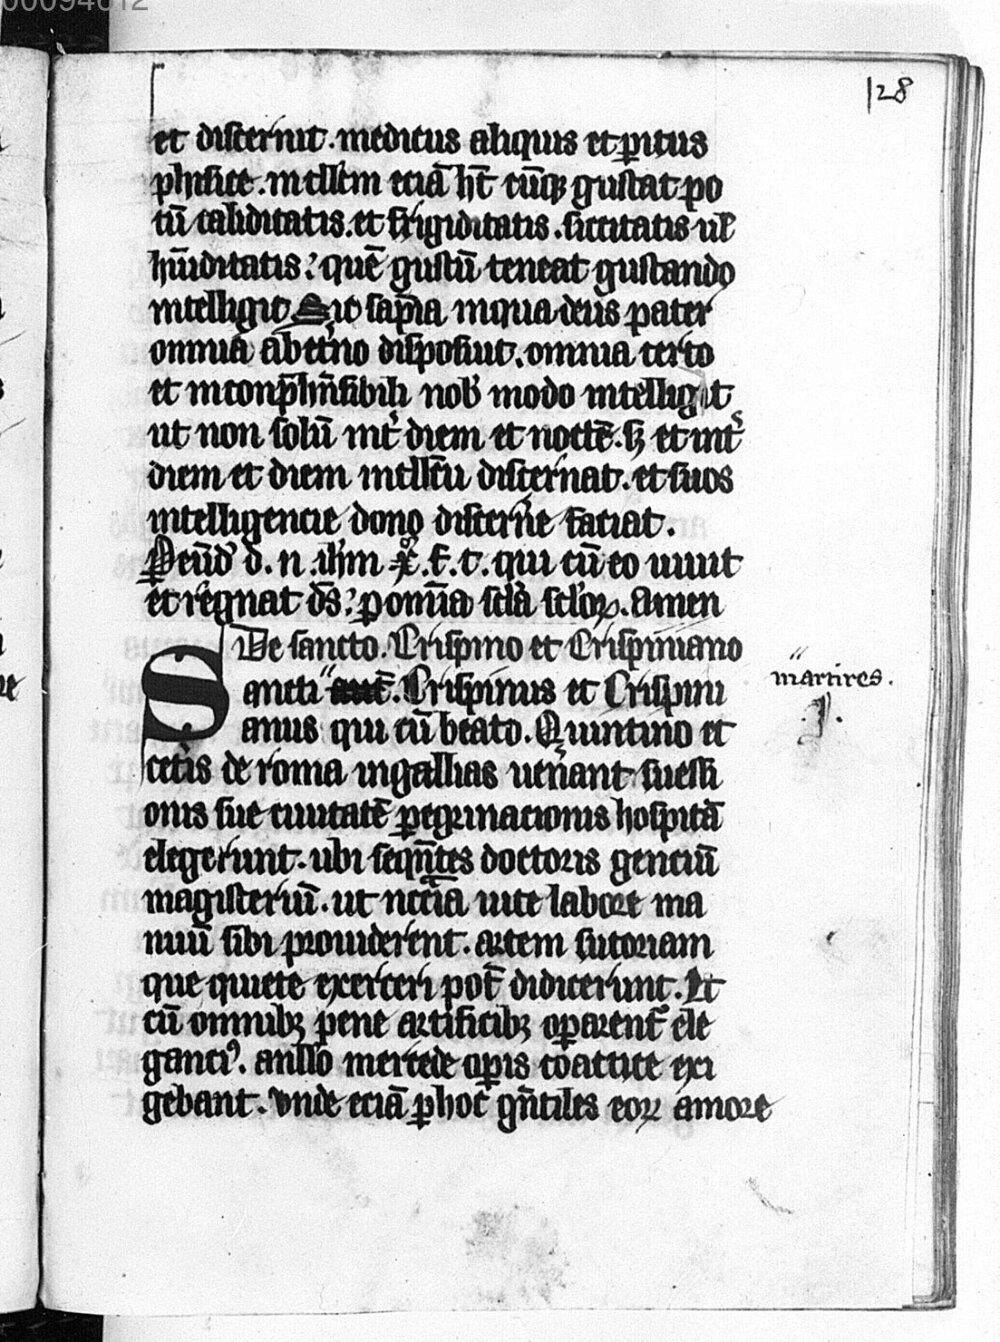 00094612
128
et discernit. medicus aliquis et ꝑitus
phisice. intllcm eciā hꝫ cūqꝫ gustat po
tū caliditatis. et frigiditatis. siccitatis uł
hūiditatis: quē gustū teneat gustando
intelligit. Sic sapīa in qua deus pater
omnia ab etno disposuit. omnia certo
et inconp̄hn̄sibili nob modo intelligit
ut non solū int diem et noctē. sꝫ et int
diem et diem intllcū discernat. et suos
intelligencie dono discerne faciat.
Peūd d. n. ihm xp̄. f. t. qui cū eo uiuit
et regnat ds: ꝑ om̄ia scla scloꝝ. amen
De sancto. Crispino et Crispiniano
Sancti autē. Crispinus et Crispini
martires.
anus qui cū beato. Quintino et
cetis de roma in gallias uenant suessi
onis sue ciuitatē ꝑegrinacionis hospitā
elegerunt. ubi seqn̄tes doctoris genciū
magisteriū. ut nccīa uite labore ma
nuū sibi prouiderent. artem sutoriam
que quiete exerceri pot didicerunt. Et
cū omnibꝫ pene artificibꝫ oparent ele
ganciꝰ. a nllo mercede opis coactice exi
gebant. Unde eciā ꝑ hoc gn̄tiles eoꝝ amore